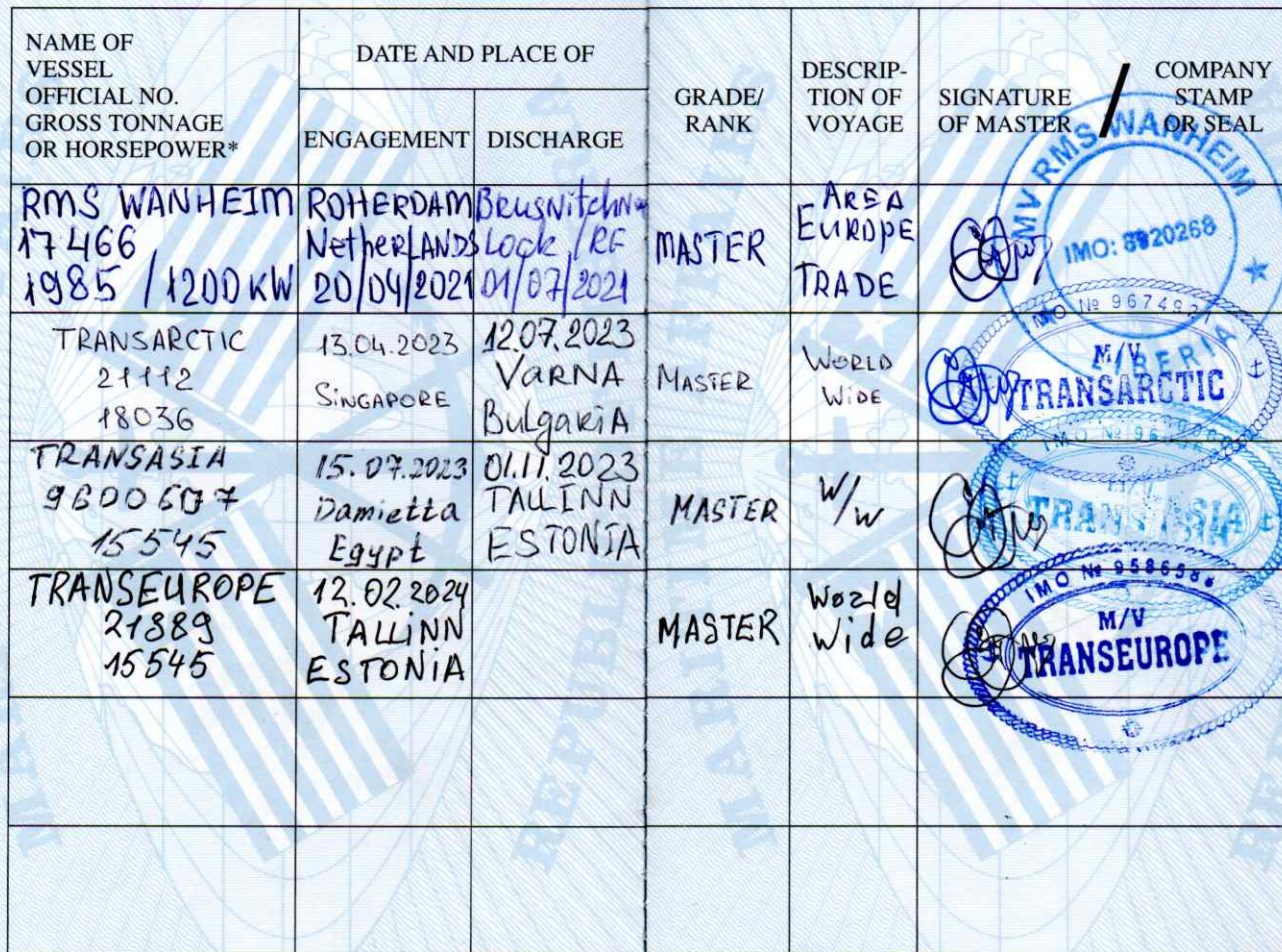 NAME OF
VESSEL
OFFICIAL NO.
GROSS TONNAGE
OR HORSEPOWER*
DATE AND PLACE OF
ENGAGEMENT
DISCHARGE
GRADE/
RANK
DESCRIP-
TION OF
VOYAGE
SIGNATURE
OF MASTER
/
COMPANY
STAMP
OR SEAL
RMS WANHEIM
17466
1985 / 1200 KW
ROTTERDAM
NetherLANDS
20/04/2021
Lock / RF
01/07/2021
MASTER
AREA
EUROPE
TRADE
MV RMS WANHEIM
IMO: 8920268
LIBERIA
TRANSARCTIC
21112
18036
13.04.2023
SINGAPORE
12.07.2023
VARNA
BulgariA
MASTER
WORLD
WIDE
IMO №
M/V
TRANSARCTIC
TRANSASIA
15545
15.07.2023
Damietta
Egypt
01.11.2023
TALLINN
ESTONIA
MASTER
W/w
IMO №
M/V
TRANSASIA
TRANSEUROPE
21889
15545
12.02.2024
TALLINN
ESTONIA
MASTER
World
Wide
IMO №
M/V
TRANSEUROPE
REPUBLIC
MARITIME